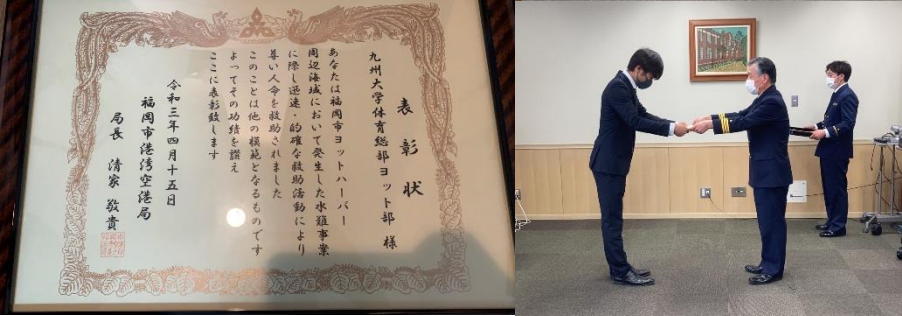 表彰状
九州大学体育総部ヨット部 様
あなたは福岡市ヨットハーバー
周辺海域において発生した水難事案
に際し迅速・的確な救助活動により
尊い人命を救助されました
このことは他の模範となるものです
よってその功績を讃え
ここに表彰致します
令和三年四月十五日
福岡市港湾空港局
局長 清家 敬貴